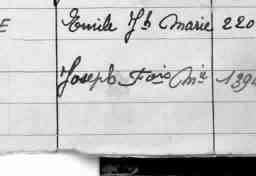 E Emile Jh Marie 220
Joseph Fois Mie 139